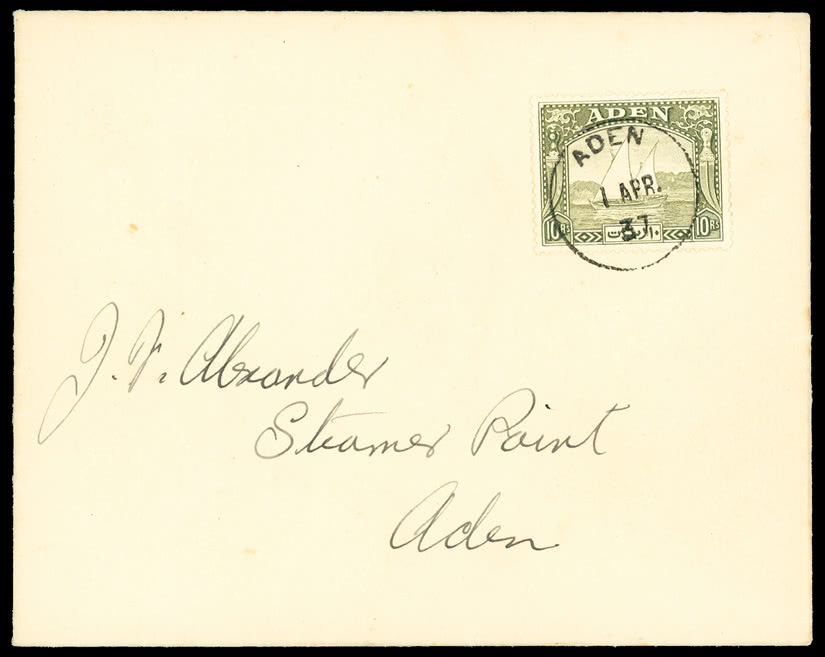 ADEN
ADEN
1 APR.
37
10 Rs
10 Rs
J. F. Alexander
Steamer Point
Aden